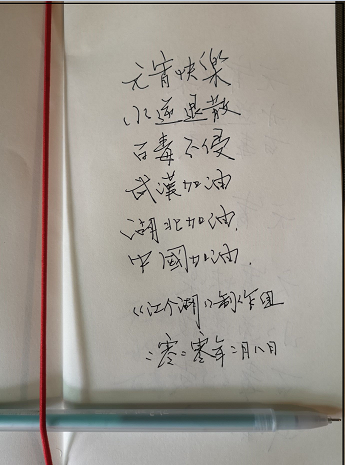 元宵快樂
水逆退散
百毒不侵
武漢加油
湖北加油.
中國加油.
《江个湖》制作组
二零二零年二月八日